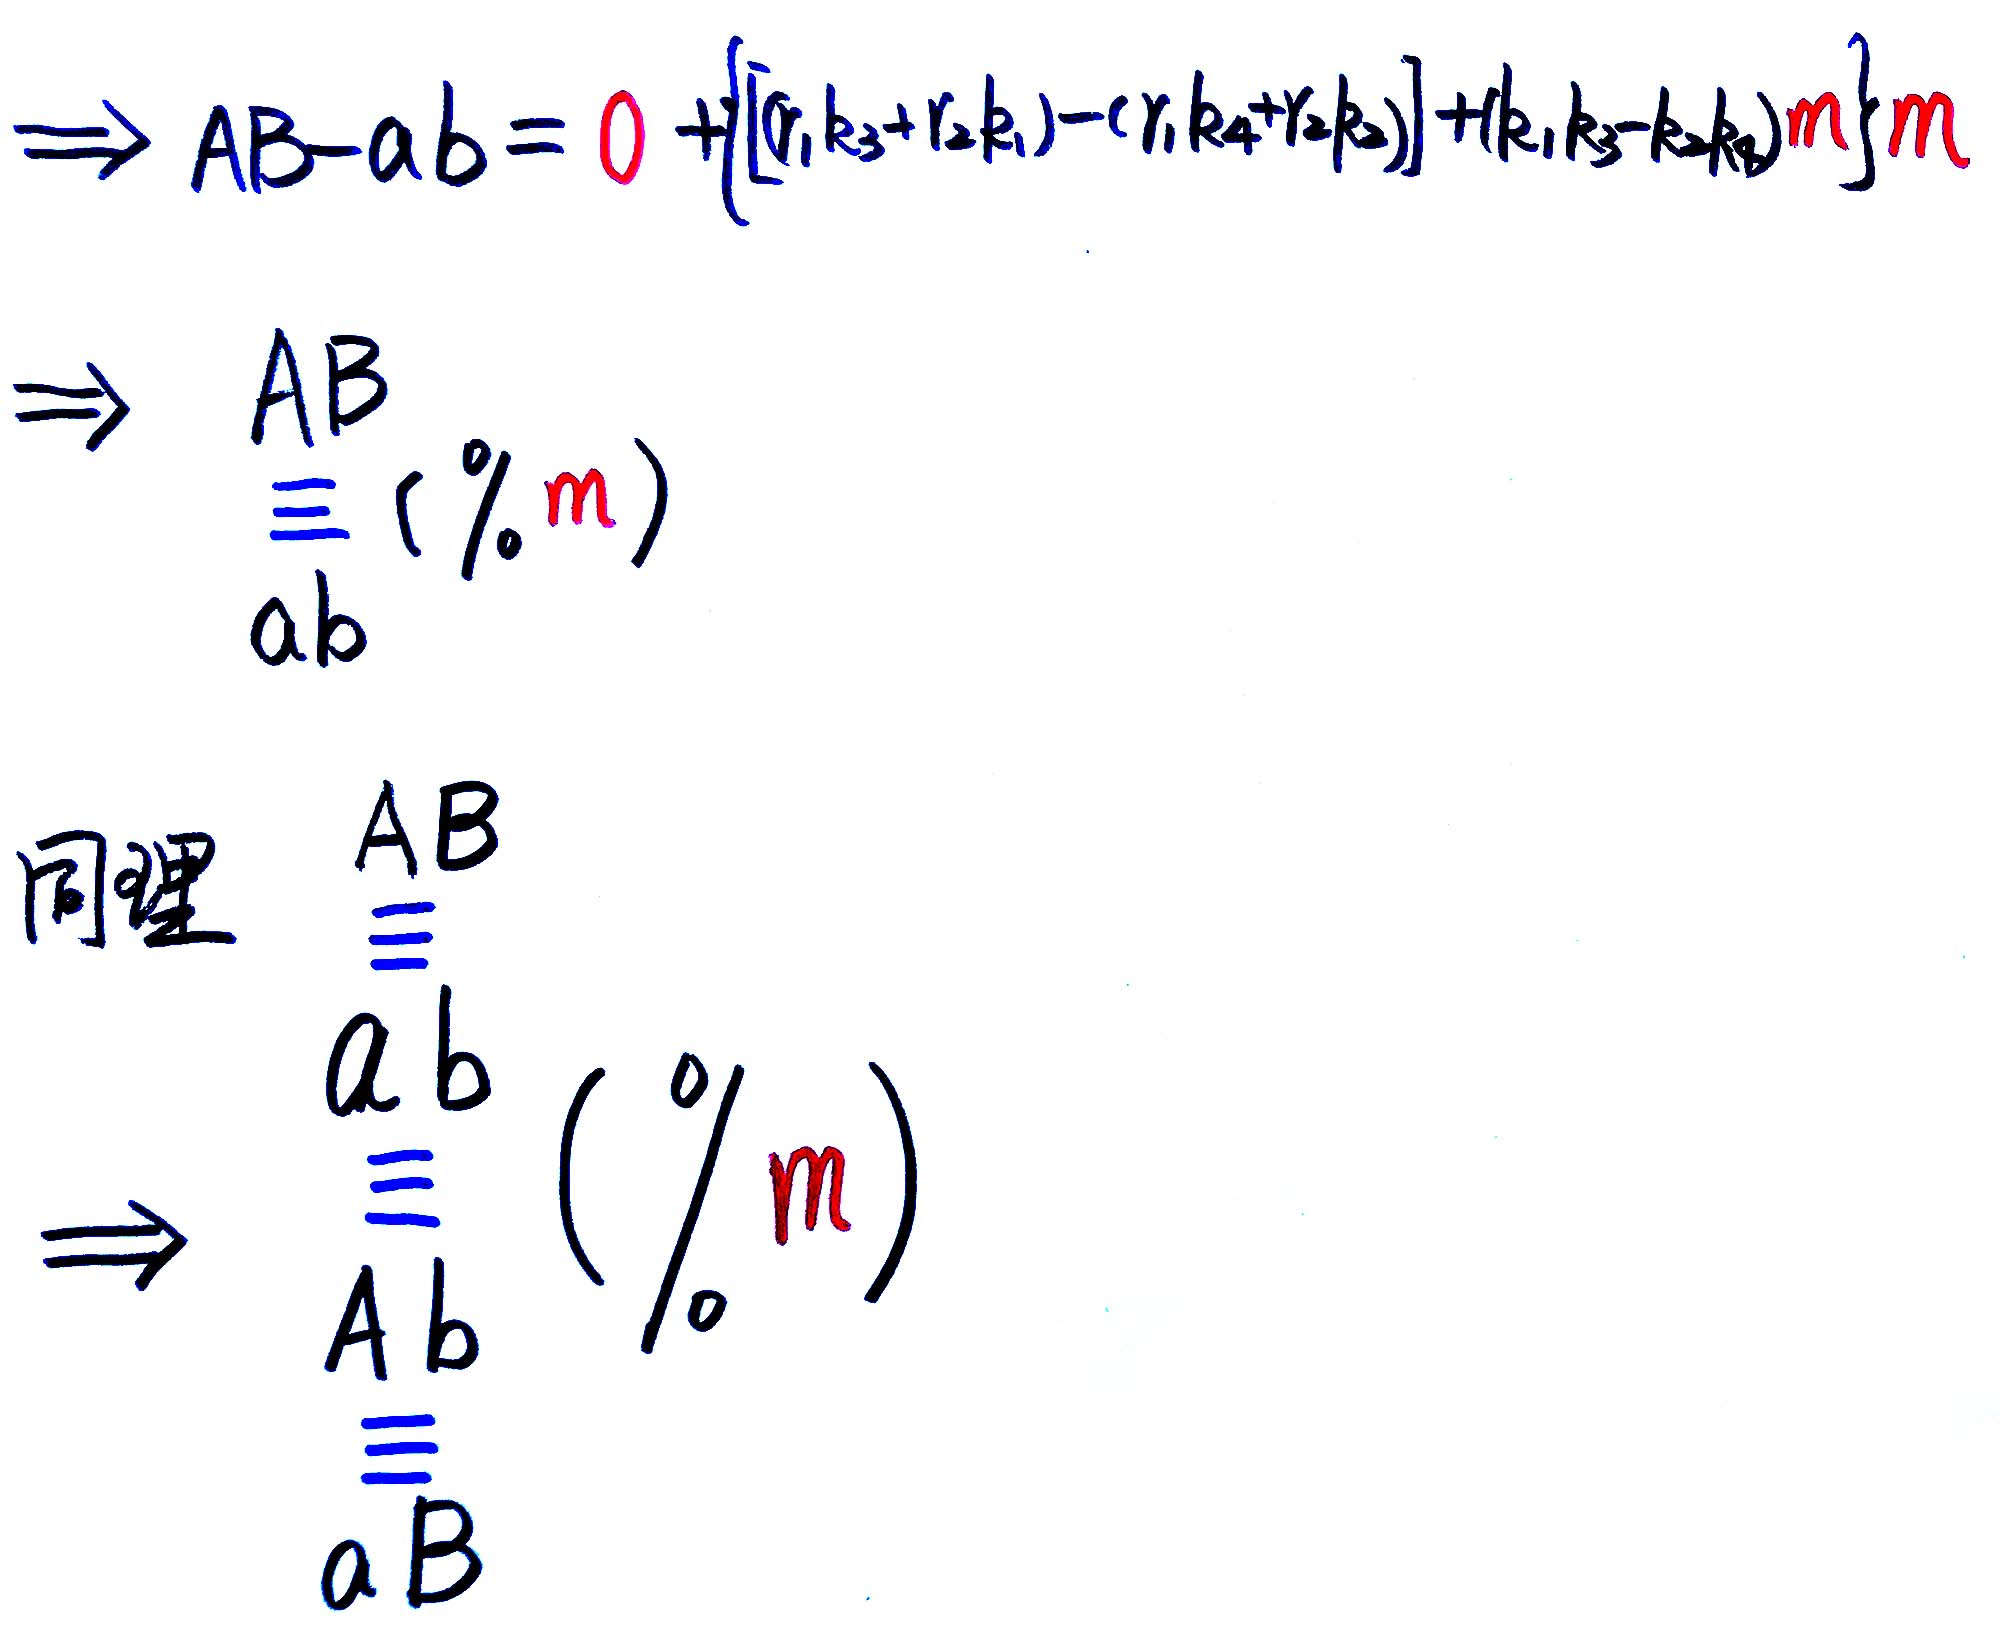 ⇒ AB-ab = 0 +{[(r₁k₃+r₂k₁)-(r₁k₄+r₂k₂)]+(k₁k₃-k₂k₄)m}m
⇒ AB
≡ (%m)
ab
同理 AB
≡
ab
≡ (%m)
⇒
Ab
≡
aB